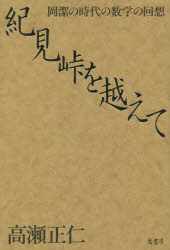 岡潔の時代の数学の回想
紀見峠を越えて
高瀬正仁
萬書房